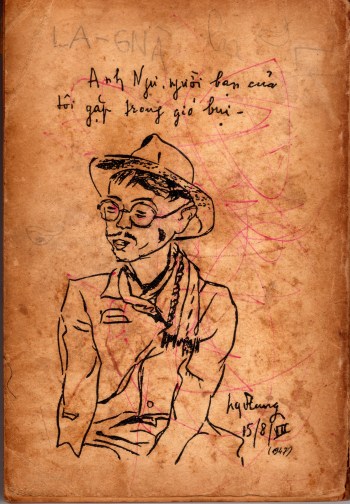 LA-GNA
Anh Ngu, người bạn của
tôi gặp trong gió bụi -
15/8/VII
(1947)